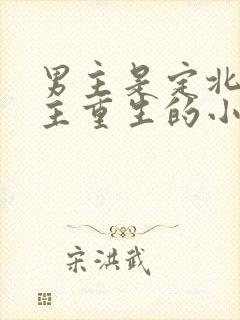 男主是定北
主重生的小
宋洪武